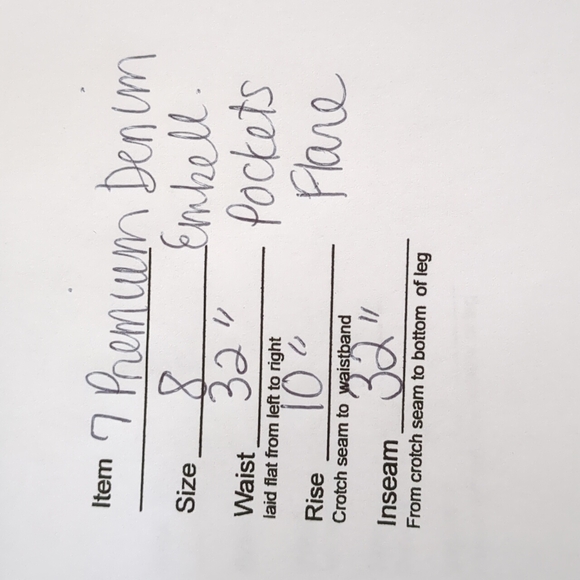 Item 7 Premium Denim
Size 8 Embell.
Waist 32" Pockets
laid flat from left to right
Rise 10" Flare
Crotch seam to waistband
Inseam 32"
From crotch seam to bottom of leg